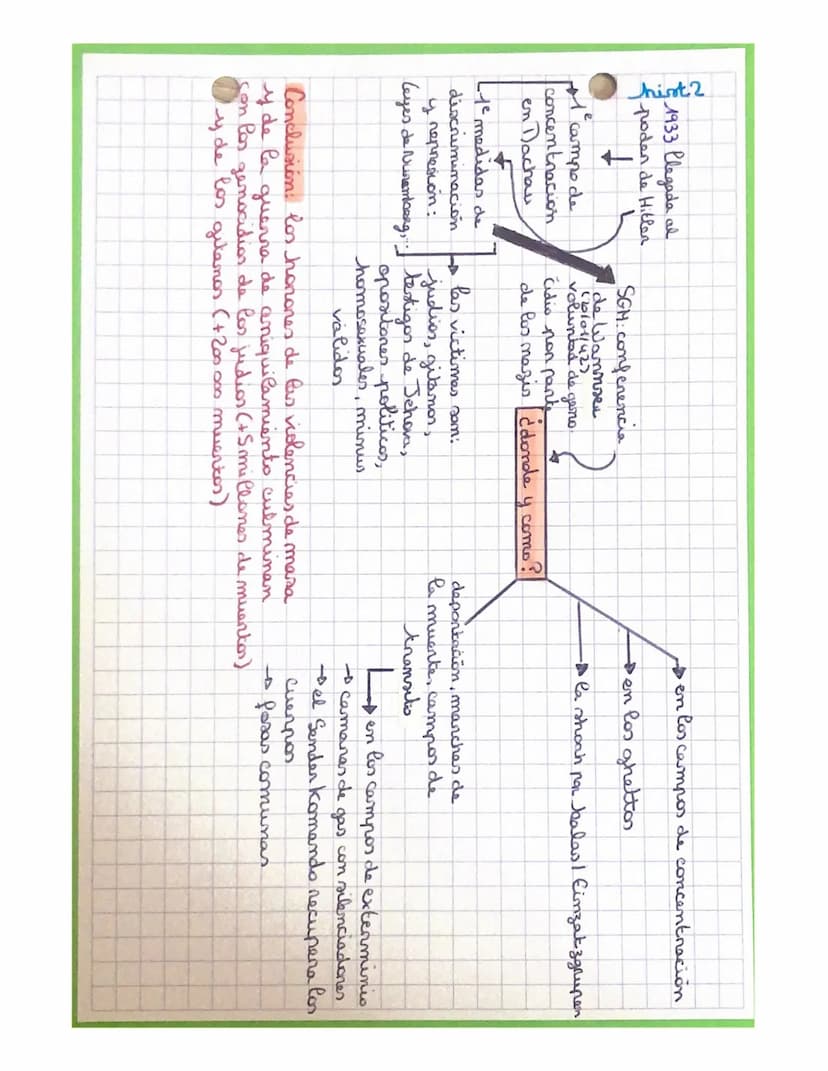 hist2
1933 llegada al
poder de Hitler
1e campo de
concentración
en Dachau
1e medidas de
discriminación
y represión:
leyes de Nuremberg,..
SGM: conferencia
de Wannsee
(20/01/42)
voluntad de geno-
cidio por parte
de los nazis
las victimas son:
judios, gitanos,
testigos de Jehova,
opositores politicos,
homosexuales, minus
validos
¿donde y como?
en los campos de concentración
en los ghettos
la shoah por balas / Einzatzgrupen
deportación, marchas de
la muerte, campos de
transito
en los campos de exterminio
→ camaras de gas con silenciadores
→ el Sonderkomando recupera los
cuerpos
→ fosas comunas
Conclusión: los horrores de las violencias de masa
y de la guerra de aniquilamiento culminan
con los genocidios de los judios (+5 millones de muertos)
y de los gitanos (+200 000 muertos)